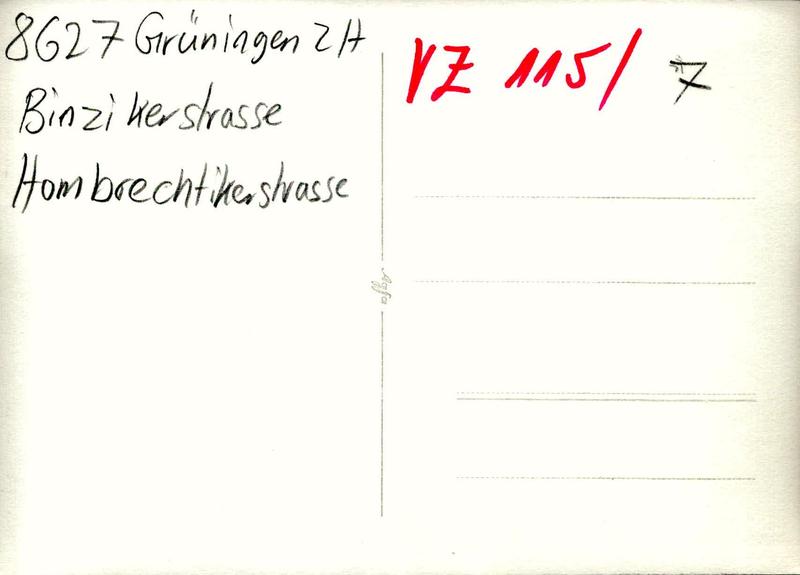 8627 Grüningen ZH
Binzikerstrasse
Hombrechtikerstrasse
VZ 115/ 7
Agfa